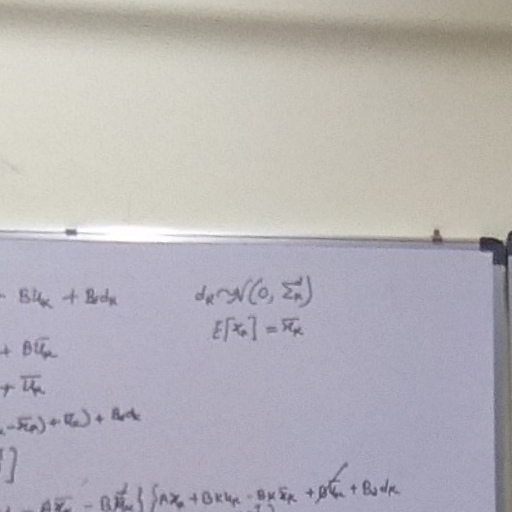 - Bu_k + B_d d_k    d_k ~ N(0, Σ_k^d)
E[x_k] = x̄_k
+ Bū_k
+ ū_k
-x̄_k) + ū_k) + B_d d_k
]
- Ax̄_k - Bū_k } { Ax_k + BKx_k - BKx̄_k + Bū_k + B_d d_k